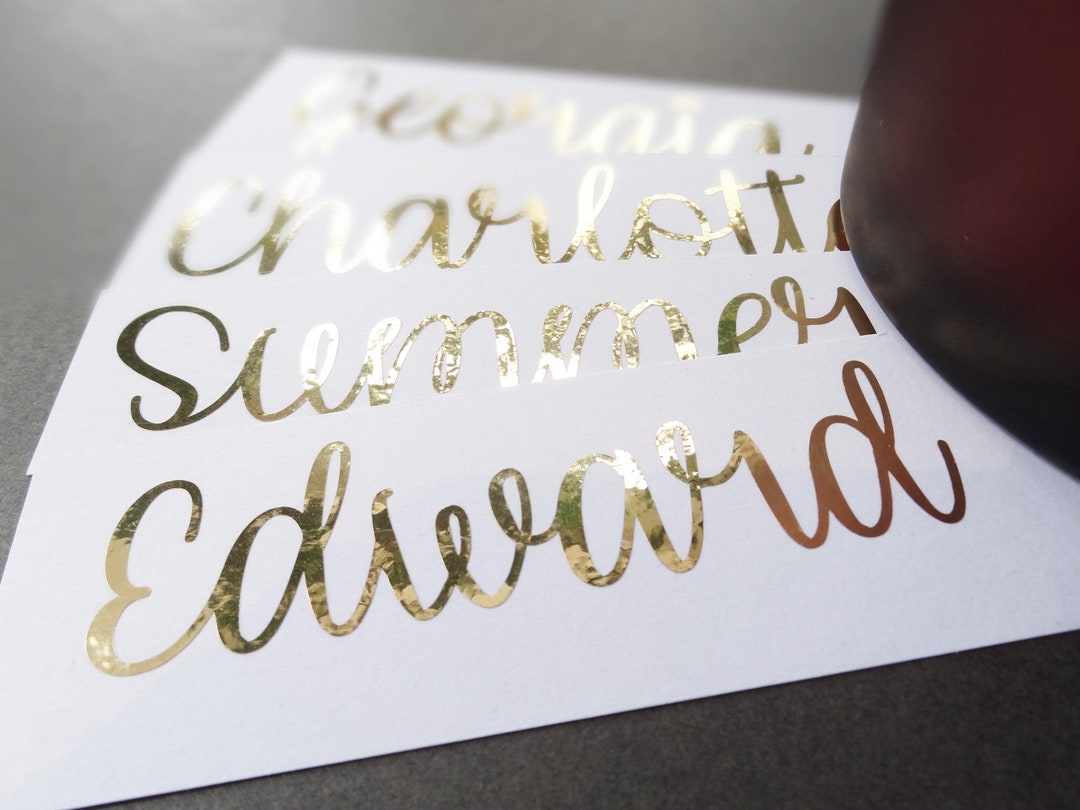 Georgia
Charlotte
Summer
Edward